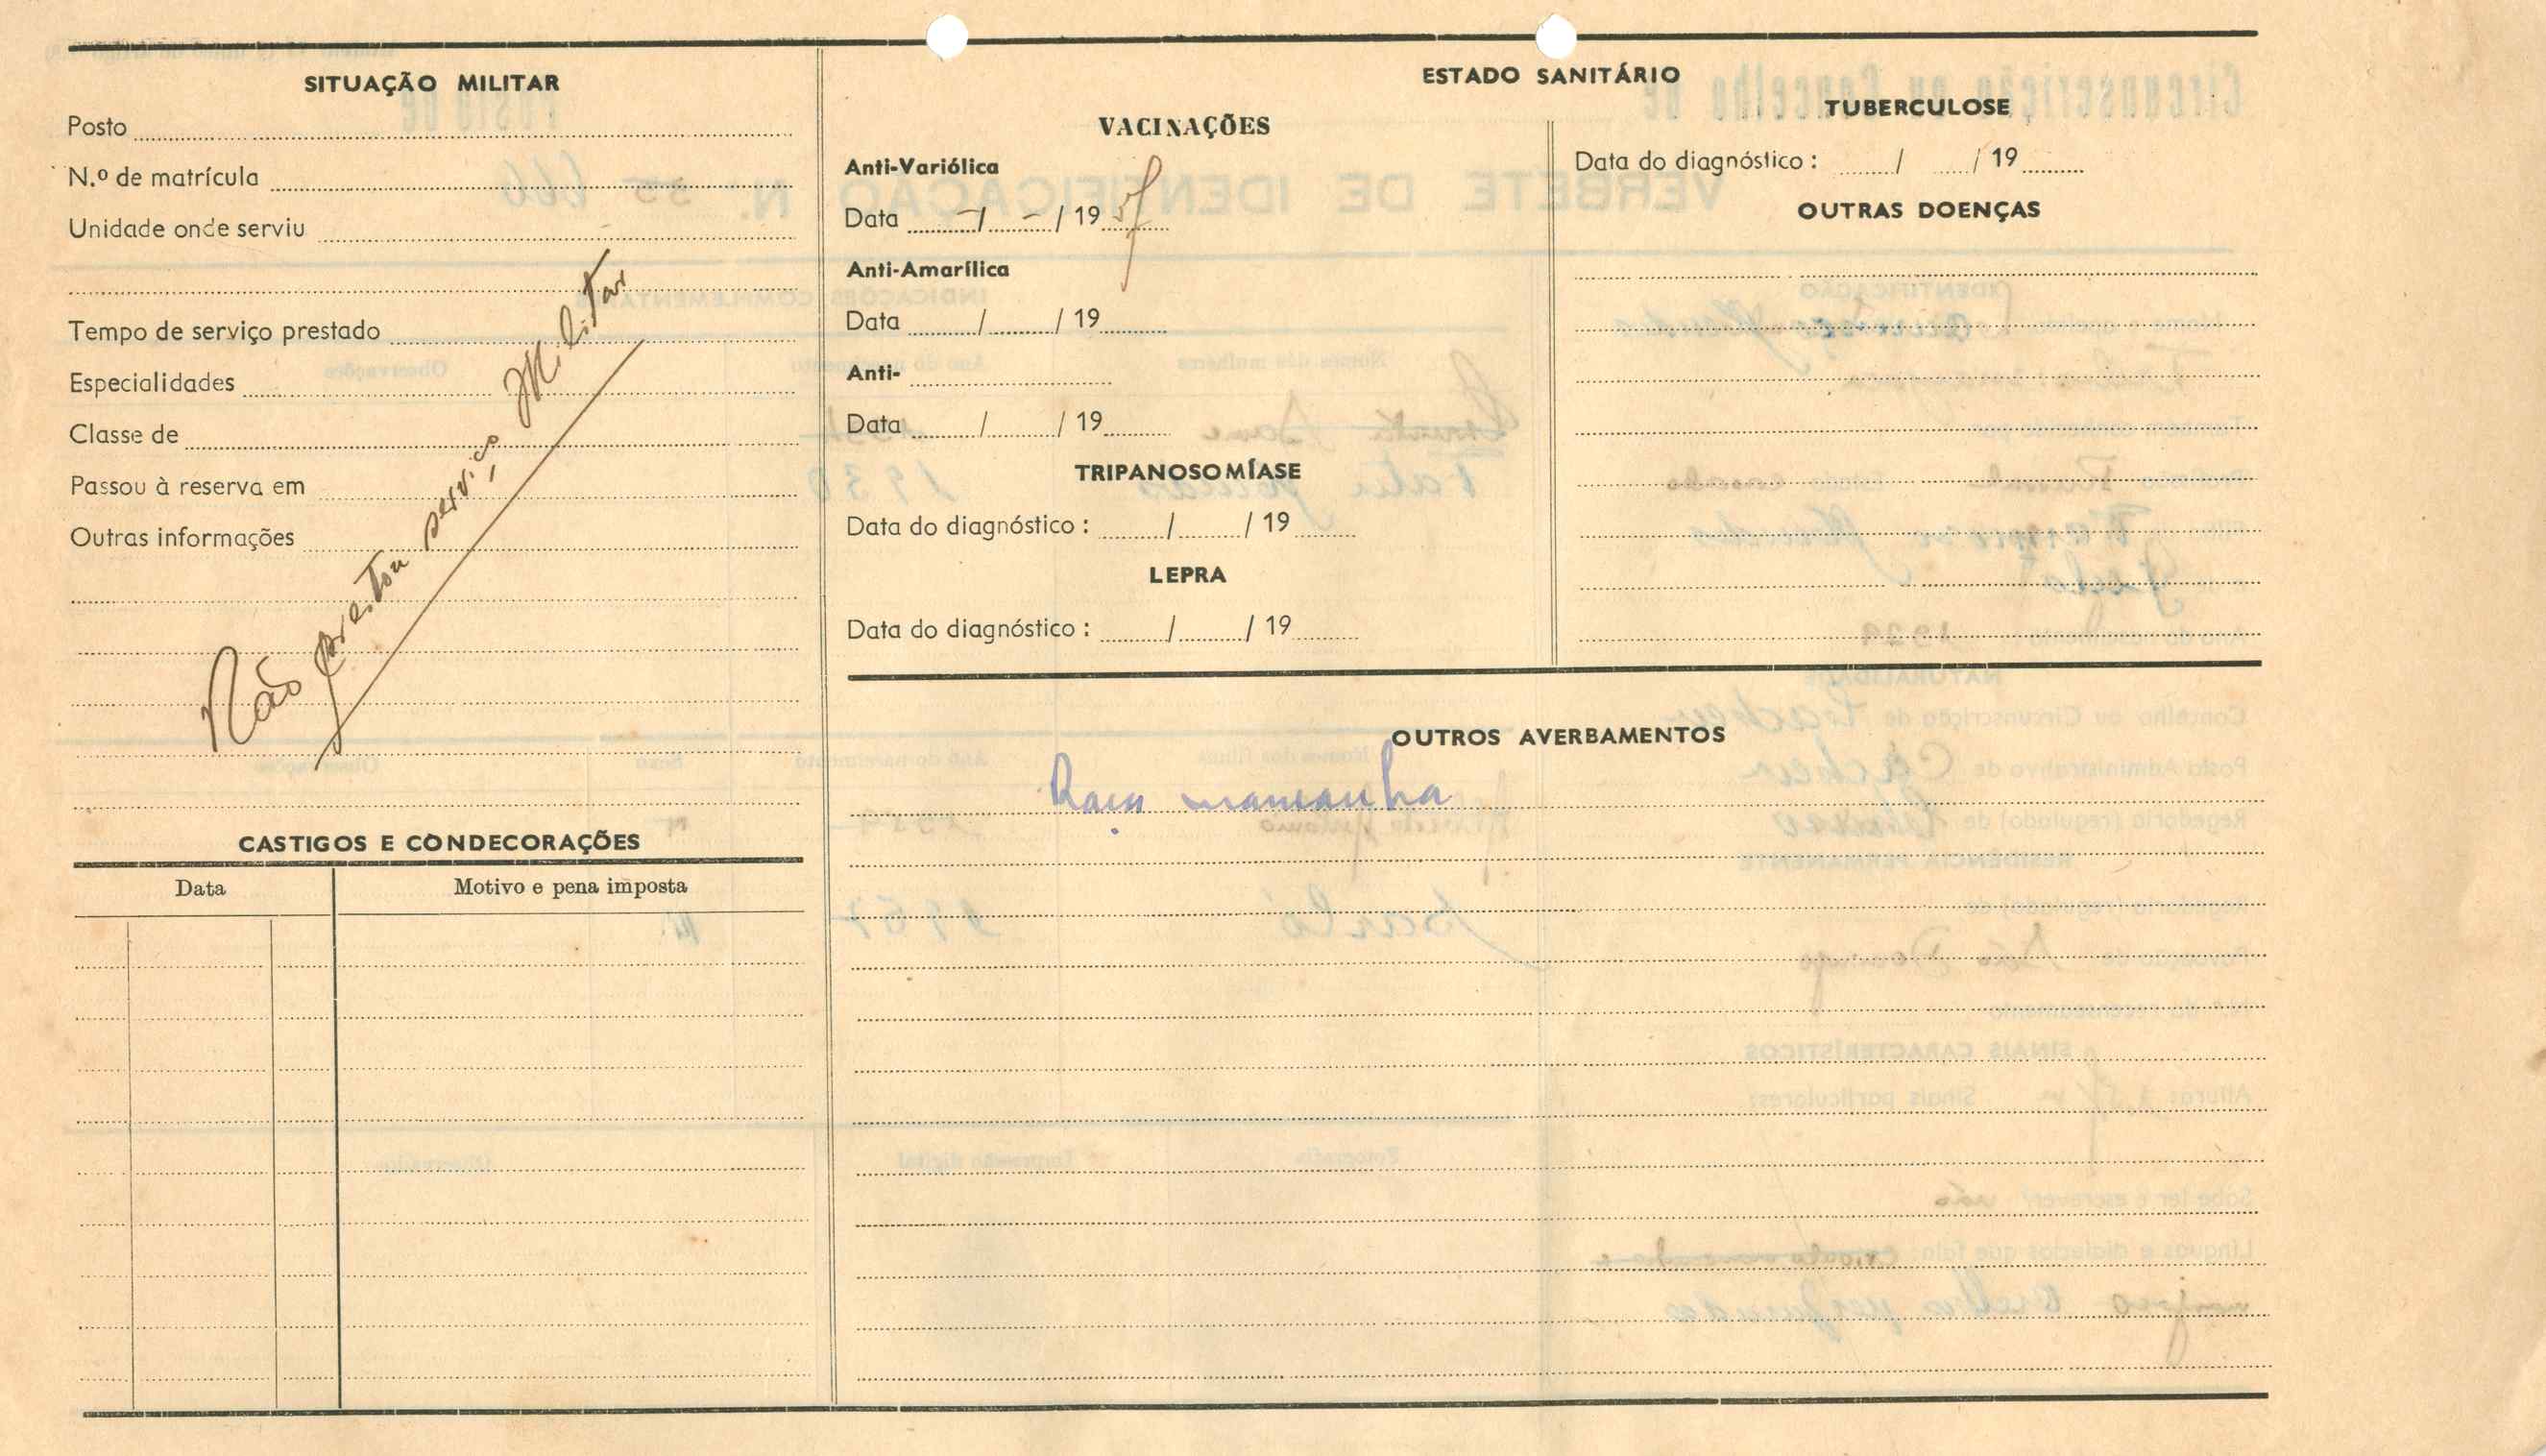 SITUAÇÃO MILITAR
Posto
N.º de matrícula
Unidade onde serviu
Tempo de serviço prestado
Especialidades
Classe de
Passou à reserva em
Outras informações
Não prestou serviço Militar
CASTIGOS E CONDECORAÇÕES
Data Motivo e pena imposta
ESTADO SANITÁRIO
VACINAÇÕES
Anti-Variólica
Data - / - / 19
Anti-Amarílica
Data / / 19
Anti-
Data / / 19
TRIPANOSOMÍASE
Data do diagnóstico : / / 19
LEPRA
Data do diagnóstico : / / 19
TUBERCULOSE
Data do diagnóstico : / / 19
OUTRAS DOENÇAS
OUTROS AVERBAMENTOS
Raça mancanha